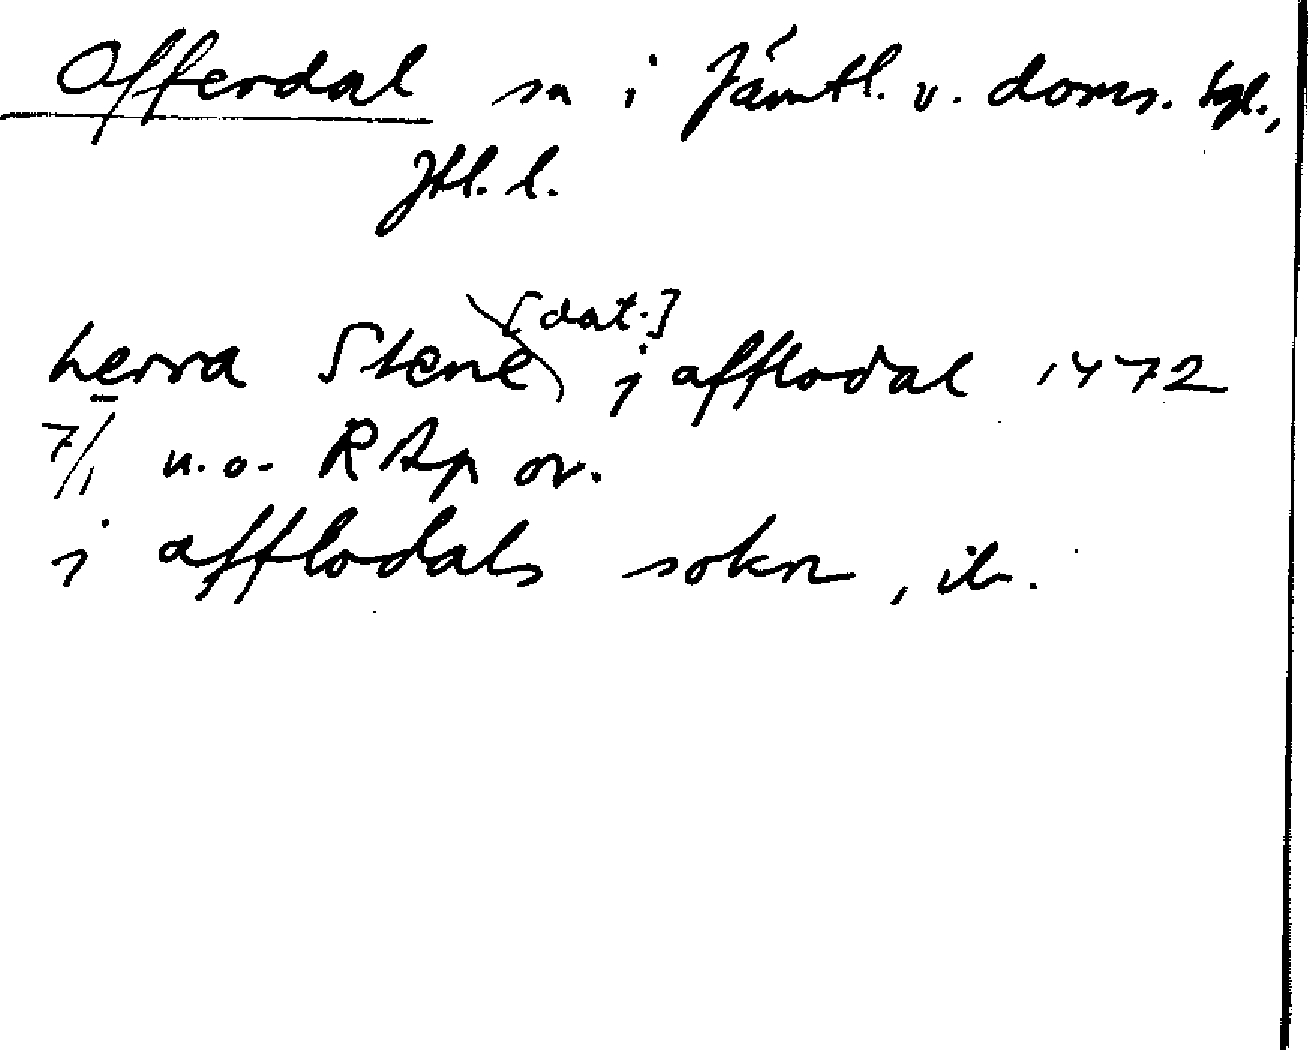 Offerdal sn i Jämtl. v. doms. tgl.,
Jtl. l.
herra Stene [dat.] j afflodal 1472
7/1 u.o. RAp or.
j afflodals sokn, ib.